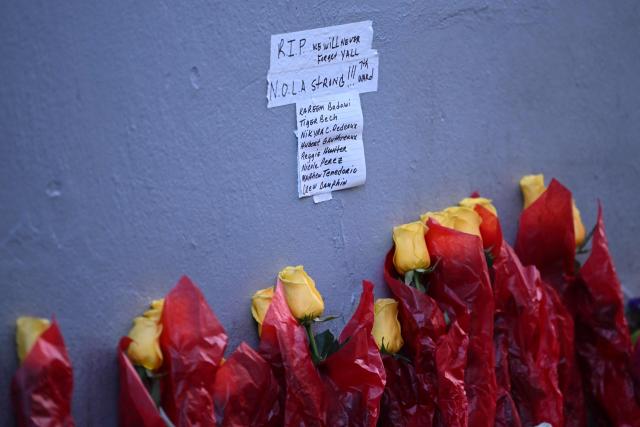 R.I.P. WE WILL NEVER
Forget YALL
N.O.L.A STRONG !!! 7th
WARD
KAREEM Badawi
TIGER Bech
NIKYRA C. Dedeaux
Hubert Gauthreaux
Reggie Hunter
Nicole PEREZ
Matthew Tenedorio
Drew DAUPHIN